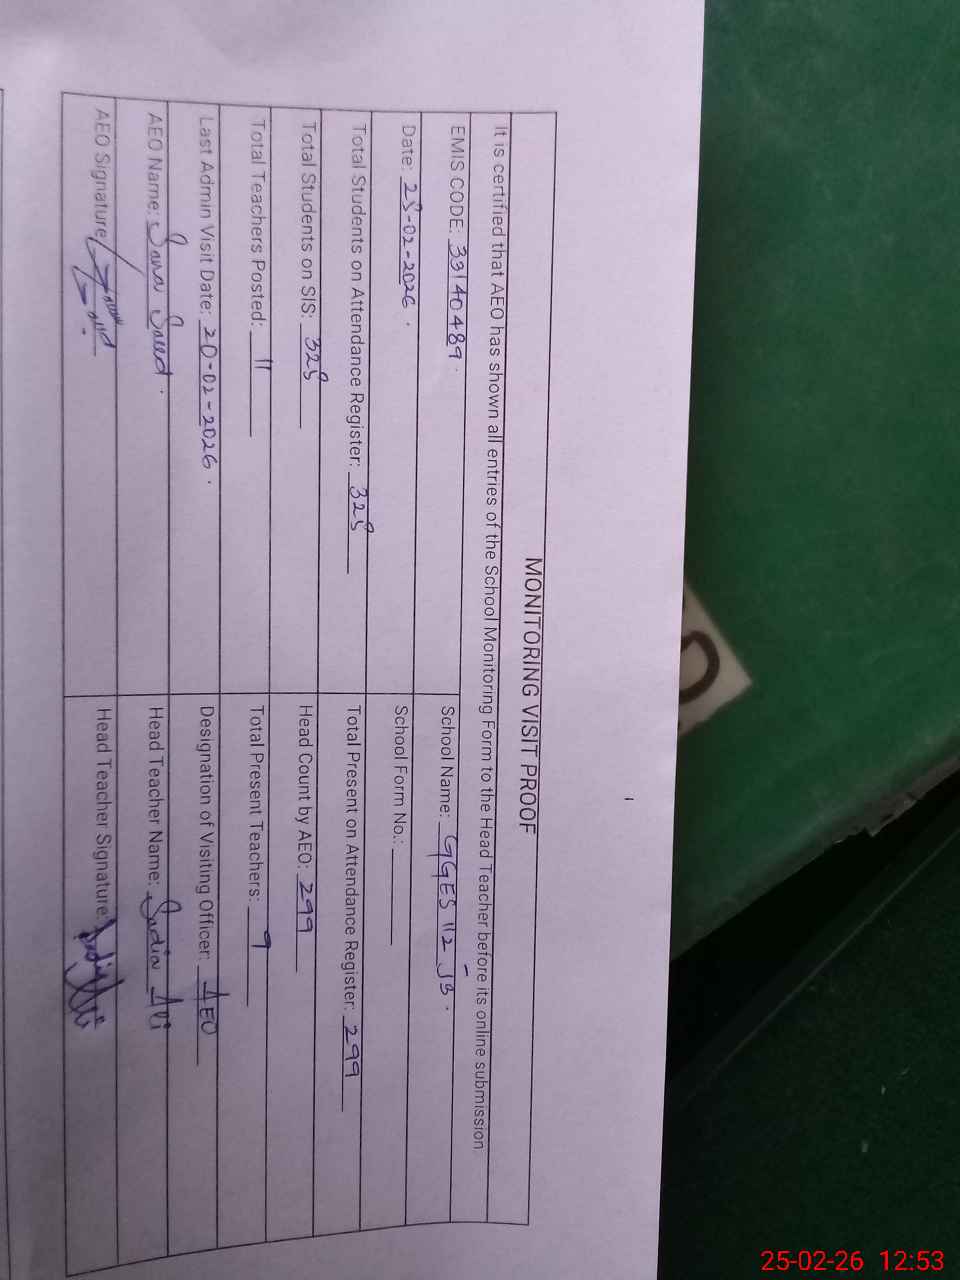 MONITORING VISIT PROOF
It is certified that AEO has shown all entries of the School Monitoring Form to the Head Teacher before its online submission
EMIS CODE: 33140489.
School Name: GGES 112 JB.
Date: 25-02-2026.
School Form No.:
Total Students on Attendance Register: 325
Total Present on Attendance Register: 299
Total Students on SIS: 325
Head Count by AEO: 299
Total Teachers Posted: 11
Total Present Teachers: 9
Last Admin Visit Date: 20-02-2026.
Designation of Visiting Officer: AEO
AEO Name: Sana Saeed.
Head Teacher Name: Sadia Ali
AEO Signature
Head Teacher Signature:
25-02-26 12:53